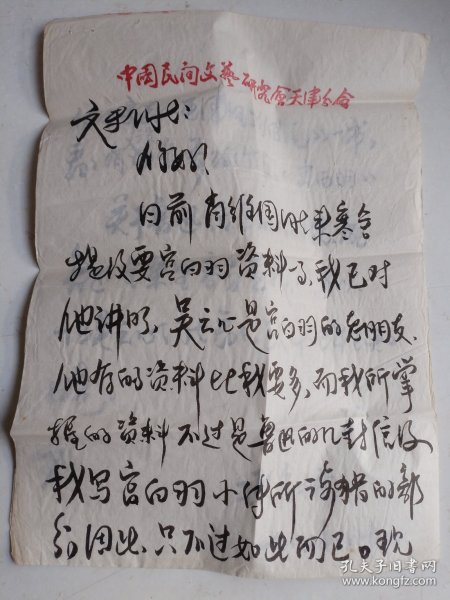 中国民间文艺研究会天津分会
文
你好！
日前 有维国 来寒舍
提及要宫白羽资料事，我已对
他讲明，吴云心是宫白羽的老朋友，
他存的资料比我要多，而我所掌
握的资料不过是鲁迅的几封信及
我写宫白羽小传所 的部
分，因此，只不过如此而已。现
孔夫子旧书网
www.kongfz.com